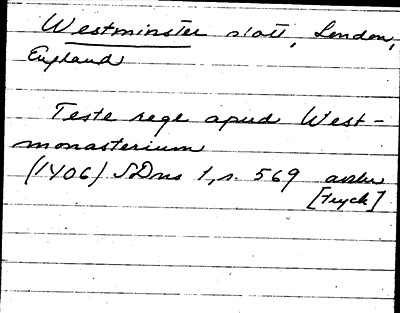 Westminster slott, London,
England
Teste rege apud West-
monasterium
(1406) SDns 1, s. 569 avskr
[tryck]